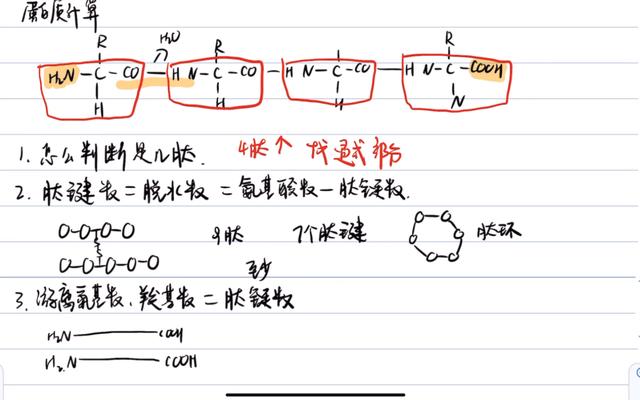 蛋白质计算
R H₂O R R
H₂N-C-CO-HN-C-CO-HN-C-CO-HN-C-COOH
H H H N
1. 怎么判断是几肽. 4肽↑ 找通式部分
2. 肽键数=脱水数=氨基酸数-肽链数.
O-O-O-O-O 9肽 7个肽键 肽环
O-O-O-O-O 至少
3. 游离氨基数、羧基数=肽链数
H₂N COOH
H₂N COOH